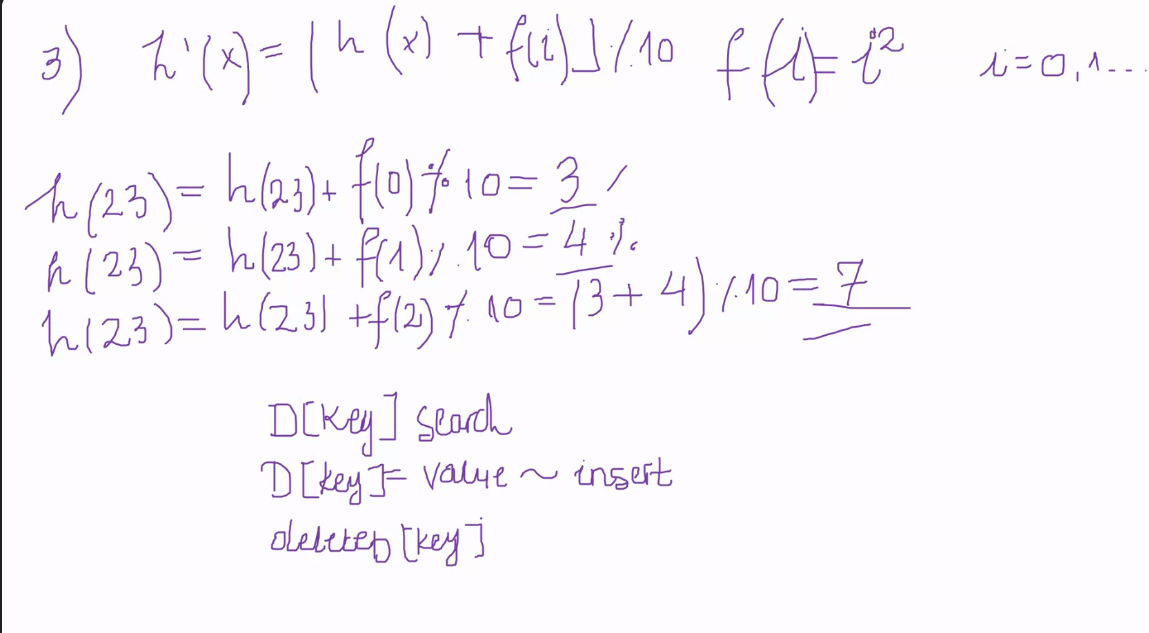 3) h'(x) = [h(x) + f(i)] % 10 f(i) = i² i = 0, 1...
h(23) = h(23) + f(0) % 10 = 3 /
h(23) = h(23) + f(1) % 10 = 4 %.
h(23) = h(23) + f(2) % 10 = (3 + 4) % 10 = 7
D[key] search
D[key] = value ~ insert
delete D[key]